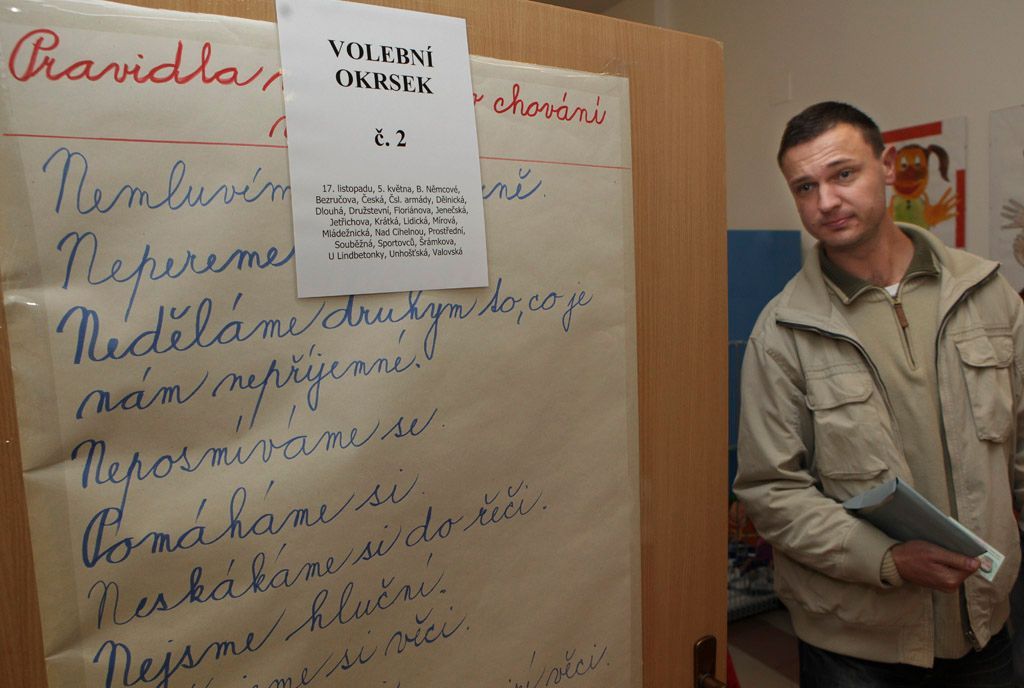 Pravidla
chování
VOLEBNÍ
OKRSEK
č. 2
17. listopadu, 5. května, B. Němcové,
Bezručova, Česká, Čsl. armády, Dělnická,
Dlouhá, Družstevní, Floriánova, Jenečská,
Jetřichova, Krátká, Lidická, Mírová,
Mládežnická, Nad Cihelnou, Prostřední,
Souběžná, Sportovců, Šrámkova,
U Lindbetonky, Unhošťská, Valovská
Nemluvím
Nepereme
Neděláme druhým to, co je
nám nepříjemné.
Neposmíváme se.
Pomáháme si.
Neskákáme si do řeči.
Nejsme hluční.
si věci.
věci.